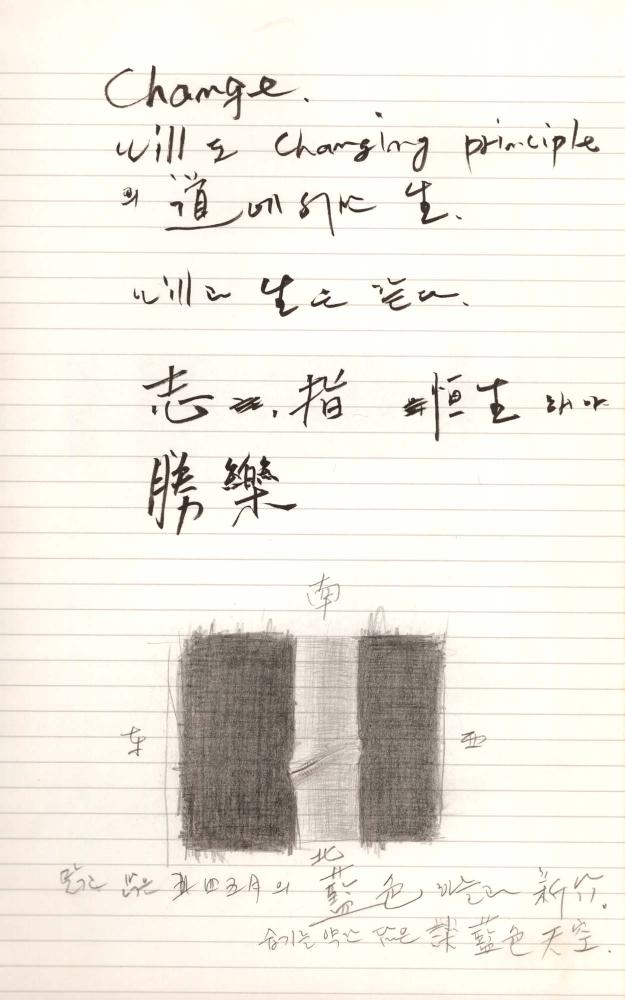 Change.
will도 changing principle
의 道에 生.
will과 生은 같다.
志 , 指 恒生 해야
勝樂
南
东 西
北
맑고 밝은 四五月의 藍色 하늘과 新竹.
습기를 약간 담은 淡藍色天空.